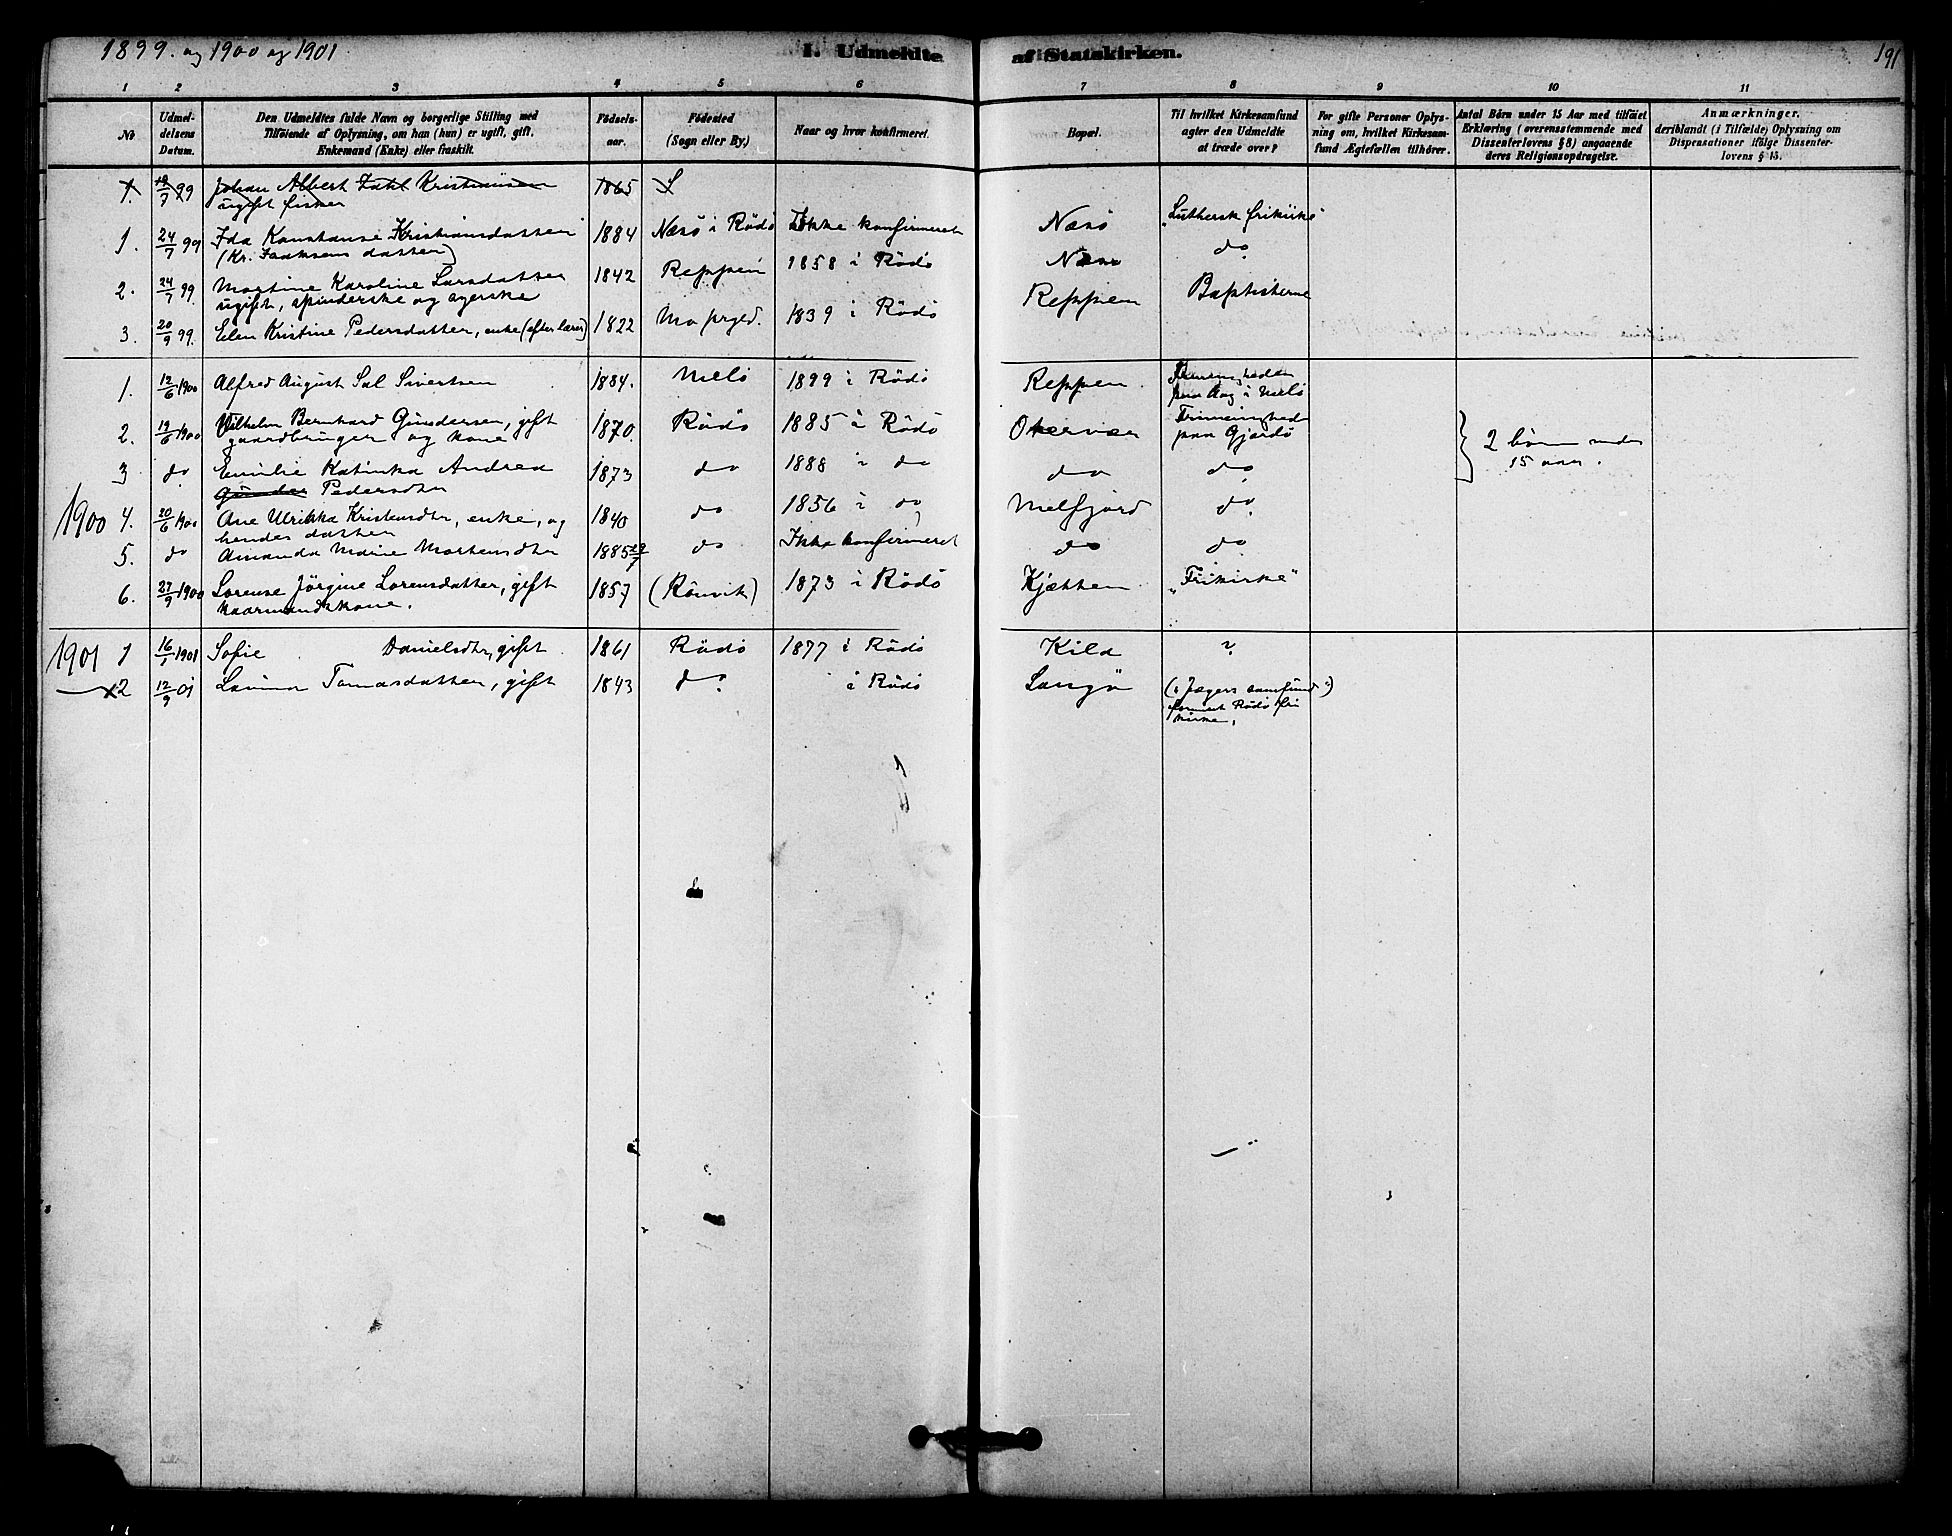 1899. og 1900 og 1901
I. Udmeldte af Statskirken.
191
1 2 3 4 5 6 7 8 9 10 11
No
Udmeldelsens Datum.
Den Udmeldtes fulde Navn og borgerlige Stilling med
Tilføiende af Oplysning, om han (hun) er ugift, gift,
Enkemand (Enke) eller fraskilt.
Fødselsaar.
Fødested
(Sogn eller By.)
Naar og hvor konfirmeret.
Bopæl.
Til hvilket Kirkesamfund
agter den Udmeldte
at træde over?
For gifte Personer Oplysning om, hvilket Kirkesamfund Ægtefællen tilhører.
Antal Børn under 15 Aar med tilføiet
Erklæring (overensstemmende med
Dissenterlovens § 8) angaaende
deres Religionsopdragelse.
Anmærkninger,
deriblandt (i Tilfælde) Oplysning om
Dispensationer ifølge Dissenterlovens § 13.
1. 99 Johan Albert Kristiansen 1865
ugift fisker
1. 24/7 99 Ida Konstanse Kristiansdatter 1884 Næsö i Rödö Ikke konfirmeret Næsö "Luthersk frikirke"
(Kr. Isaksens datter)
2. 24/7 99. Martine Karoline Larsdatter 1842 Reppen 1858 i Rödö do
ugift, spinderske og
3. 20/9 99. Elen Kristine Pedersdatter, enke (efter lærer) 1822 Mo prgld. 1839 i Rödö Reppen Baptisterne
1. 12/6 1900 Alfred August Sivertsen 1884. Melö 1899 i Rödö Reppen paa Aag i Melö
2. 19/6 1900 Vilhelm Bernhard Gundersen, gift 1870. Rödö 1885 i Rödö Otervær Frimenighed
gaardbruger og kone paa Gjerdö
2 börn under
15 aar.
3 do Emilie Katinka Andrea 1873 do 1888 i do do do
Pedersdtr
1900 4. 20/6 1900 Ane Ulrikka Kristensdtr, enke, og 1840 do 1856 i do Melfjord do
hendes datter
5. do Amanda Marie Mortensdtr 1885 do Ikke konfirmeret do do
6. 27/9 1900 Lorense Jörgine Lorensdatter, gift 1857 (Rönvik) 1873 i Rödö Kjætten "Frikirke"
kaarmandskone.
1901 1 16/1 1901 Sofie Danielsdtr, gift 1861 Rödö 1877 i Rödö Kila ?
2 12/9 01 Lavina Tomasdatter, gift 1843 do i Rödö Langö ("Jægers samfund")
Rödö frikirke.